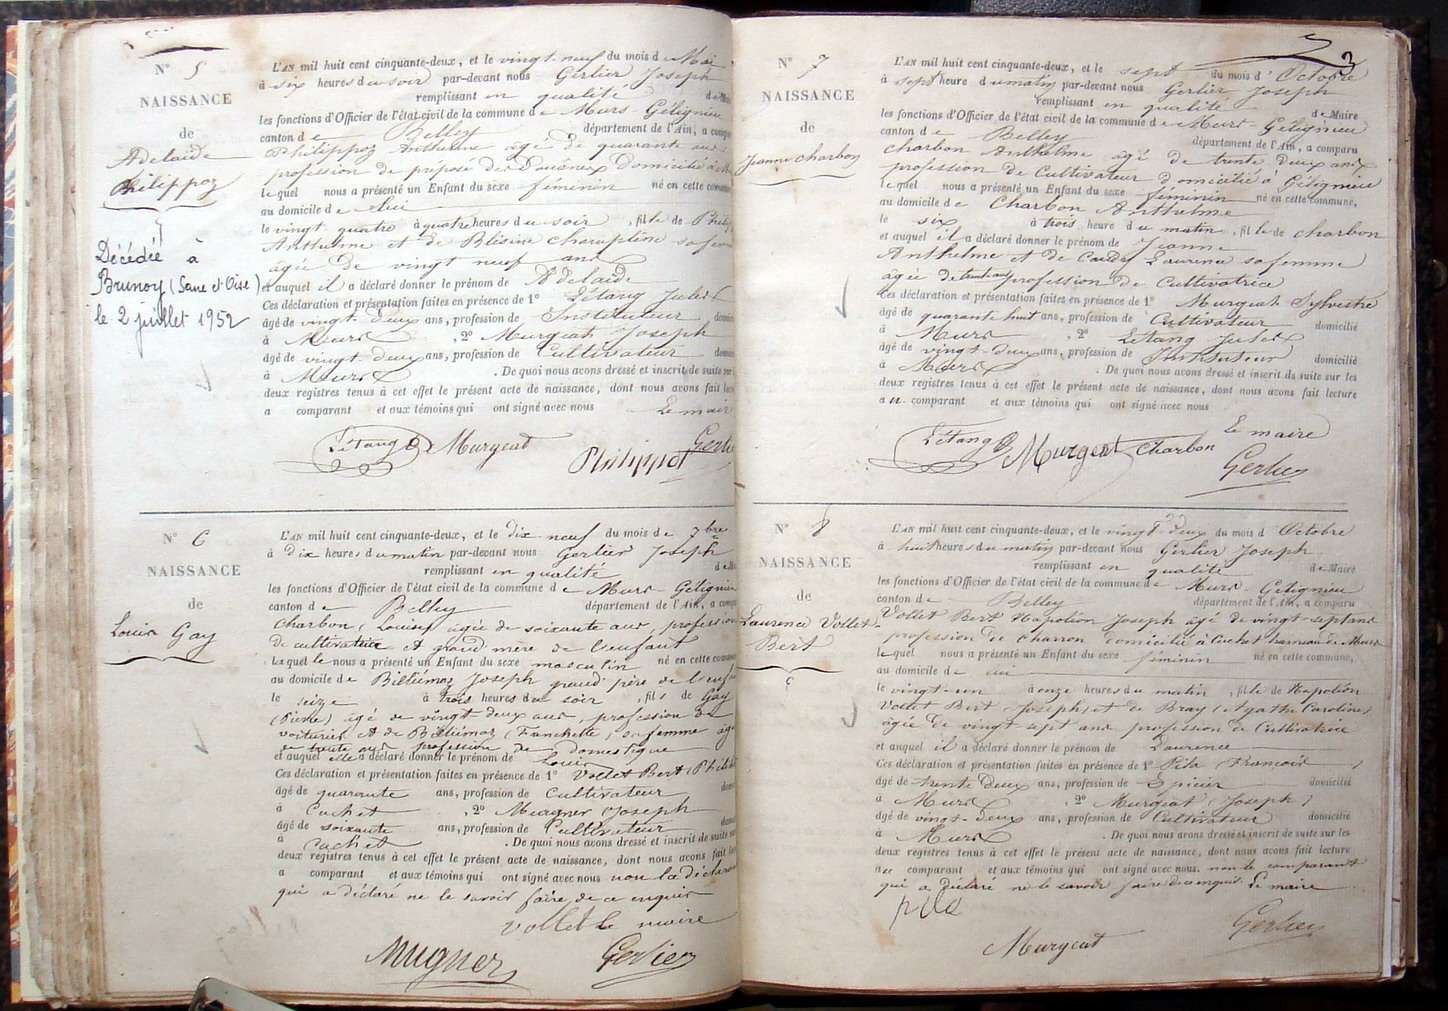 N° 5
NAISSANCE
de
Adelaide
Philippoz
Décédée à
Brunoy (Seine et Oise)
le 2 juillet 1952
L'AN mil huit cent cinquante-deux, et le vingt-neuf du mois de Mai
à six heures du soir par-devant nous Gerlier Joseph
remplissant en qualité de Maire
les fonctions d'Officier de l'état civil de la commune de Murs-Gélignieu
canton de Belley département de l'Ain, a comparu
Philippoz Anthelme âgé de quarante ans
profession de préposé des Douânes Domicilié à
lequel nous a présenté un Enfant du sexe féminin né en cette commune
au domicile de lui
le vingt quatre à quatre heures du soir, fille de
Anthelme et de Champlène sa femme
âgée de vingt neuf ans
et auquel il a déclaré donner le prénom de Adelaide
Ces déclaration et présentation faites en présence de 1° Létang Jules
âgé de vingt-deux ans, profession de Instituteur
à Murs, 2° Murgeat Joseph
âgé de vingt-deux ans, profession de Cultivateur
à Murs. De quoi nous avons dressé et inscrit de suite sur
deux registres tenus à cet effet le présent acte de naissance, dont nous avons fait
a comparant et aux témoins qui ont signé avec nous Le maire
Létang Murgeat Philippot
N° 6
NAISSANCE
de
Louis Gay
L'AN mil huit cent cinquante-deux, et le dix neuf du mois de 7bre
à Dix heures du matin par-devant nous Gerlier Joseph
remplissant en qualité
les fonctions d'Officier de l'état civil de la commune de Murs-Gélignieu
canton de Belley département de l'Ain, a
Charbon (Louise) âgée de soixante ans, profession
de cultivatrice et grand mère de l'enfant
Laquelle nous a présenté un Enfant du sexe masculin né en cette
au domicile de Billiemaz Joseph grand père de
le seize à trois heures du soir, fils de Gay
âgé de vingt deux ans, profession de
voiturier et de Billiemaz (Fanchette) sa femme
de trente ans profession de domestique
et auquel elle a déclaré donner le prénom de Louis
Ces déclaration et présentation faites en présence de 1° Vollet Bert
âgé de quarante ans, profession de Cultivateur
à Cuchet, 2° Mugner Joseph
âgé de soixante ans, profession de Cultivateur
à Cuchet. De quoi nous avons dressé et inscrit de suite
deux registres tenus à cet effet le présent acte de naissance, dont nous avons fait
a comparant et aux témoins qui ont signé avec nous non la
qui a déclaré ne le savoir faire de ce enquise
Vollet le maire
Mugner Gerlier
N° 7
NAISSANCE
de
Jeanne Charbon
L'AN mil huit cent cinquante-deux, et le sept du mois d'Octobre
à sept heure du matin par-devant nous Gerlier Joseph
remplissant en qualité de Maire
les fonctions d'Officier de l'état civil de la commune de Murs Gelignieu
canton de Belley département de l'Ain, a comparu
Charbon Anthelme âgé de trente deux ans
profession de Cultivateur domicilié à Gélignieu
lequel nous a présenté un Enfant du sexe féminin né en cette commune,
au domicile de Charbon Anthelme
le six à trois heure du matin, fille de Charbon
et auquel il a déclaré donner le prénom de Jeanne
Anthelme et de Laurence sa femme
âgée de profession de Cultivatrice
Ces déclaration et présentation faites en présence de 1° Murgeat Sylvestre
âgé de quarante huit ans, profession de Cultivateur domicilié
à Murs, 2° Létang Jules
âgé de vingt-deux ans, profession de Instituteur domicilié
à Murs. De quoi nous avons dressé et inscrit de suite sur les
deux registres tenus à cet effet le présent acte de naissance, dont nous avons fait lecture
au comparant et aux témoins qui ont signé avec nous
le maire
Létang Murgeat Charbon
Gerlier
N° 8
NAISSANCE
de
Laurence Vollet
Bert
L'AN mil huit cent cinquante-deux, et le vingt deux du mois d Octobre
à huit heures du matin par-devant nous Gerlier Joseph
remplissant en qualité de Maire
les fonctions d'Officier de l'état civil de la commune de Murs-Gelignieu
canton de Belley département de l'Ain, a comparu
Vollet Bert Napoléon Joseph âgé de vingt-sept ans
profession de Charron domicilié à Cuchet hameau de Murs
lequel nous a présenté un Enfant du sexe féminin né en cette commune,
au domicile de
le vingt-un à onze heures du matin, fille de Napoléon
Vollet Bert Joseph et de Bray (Agathe Caroline)
âgée de vingt sept ans profession de Cultivatrice
et auquel il a déclaré donner le prénom de Laurence
Ces déclaration et présentation faites en présence de 1° Pila (François)
âgé de trente deux ans, profession de Epicier domicilié
à Murs, 2° Murgeat (Joseph)
âgé de vingt-deux ans, profession de Cultivateur domicilié
à Murs. De quoi nous avons dressé et inscrit de suite sur les
deux registres tenus à cet effet le présent acte de naissance, dont nous avons fait lecture
au comparant et aux témoins qui ont signé avec nous. non le comparant
qui a déclaré ne le savoir faire de ce enquis. Le maire
pila
Murgeat
Gerlier